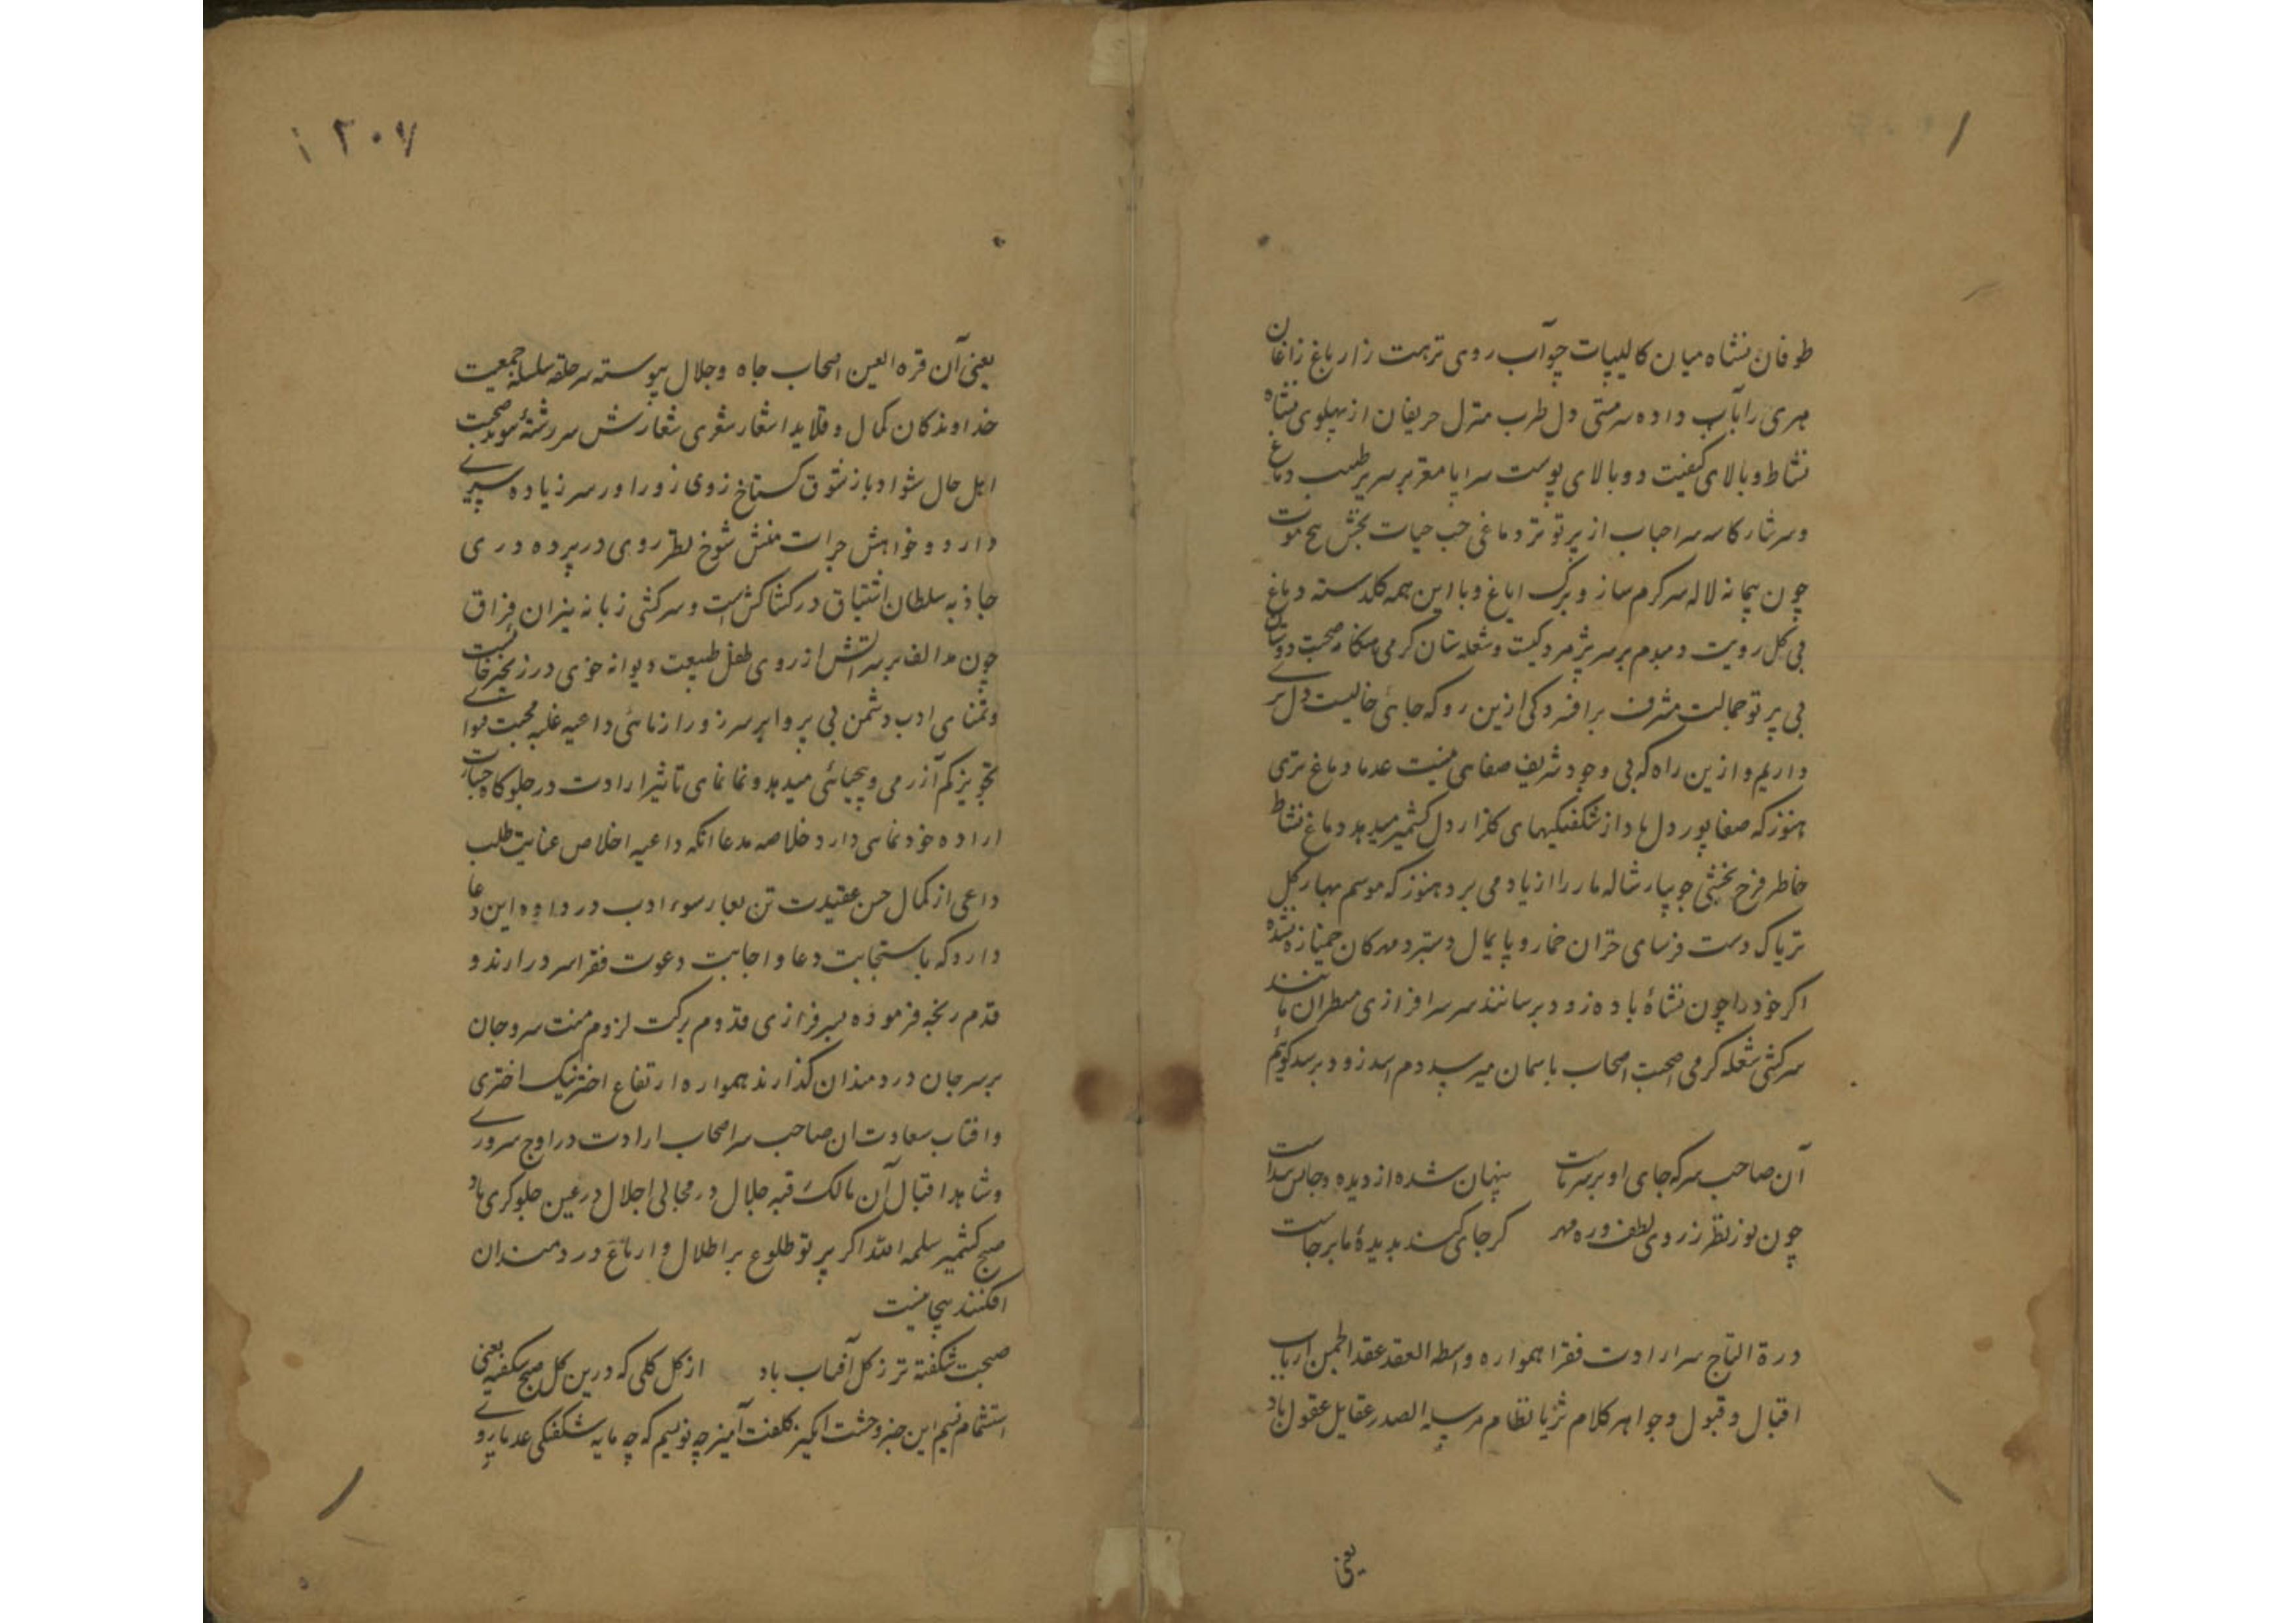 طوفان نشاه میان کالیپات چو آب روی تربت زار باغ زاغان
مهری را بآب داده سرمستی دل طرب منزل حریفان از پهلوی نشاه
نشاط و بالای کیفیت دوبالای پوست سراپا مغز بر سر طیب دماغ
و سرشار کاسه سر احباب از پرتو تر دماغی حب حیات بخش
چون پیمانه لاله سرکرم ساز و برک ایاغ و با این همه کلدسته دماغ
بی کل رویت دمبدم بر سر پژمردکیت و شعله سان کرمی هنکامه صحبت دوستان
بی پرتو جمالت مشرف بر افسردکی ازین رو که جائی خالیست دل پر
داریم و ازین راه که بی وجود شریف صفاهی نیست عدما دماغ تری
هنوز که صفاپور دل ها داد از شکفتکیهای کلزار دل کشمیر میدهد دماغ نشاط
خاطر فرح بخشی جویبار شاله مار را از یاد می برد هنوز که موسم بهار کل
تریاک دست فرسای خزان خمار و پایمال دستبرد مهرکان خمیازه نشده
اکر خود را چون نشاهٔ باده زود برسانند سر سرافرازی منتظران مانند
سرکشی شعله کرمی صحبت اصحاب باسمان میرسد دم اسد زود برسد کوئیم
آن صاحب سر که جای او بر سر ماست پنهان شده از دیده و جانش پیداست
چون نور نظر ز روی لطف و ره مهر کر جای کند بدیدهٔ ما بر جاست
درة التاج سر ارادت فقرا همواره واسطه العقد عقد انجمن ارباب
اقبال و قبول و جواهر کلام ثریا نظام مرسله الصدر عقایل عقول باد
یعنی
۱۲۰۷
یعنی آن قره العین اصحاب جاه و جلال پیوسته سر حلقه سلسله جمعیت
خداوندکان کمال و قلاید اشعار شعری شعارش سر رشتهٔ صحبت
اهل حال شواد باز شوق کستاخ روی زور اور سر زیاده سری
دارد و خواهش جرات منش شوخ نظر روی در پرده دری
جاذبه سلطان اشتیاق در کشاکش است و سرکشی زبانه نیران فراق
چون مد الف بر سر آتش از روی طفل طبیعت دیوانه خوی در زنجیر
و تمنای ادب دشمن بی پروا بر سر زور ازمائی داعیه غلبه محبت
تجویز کم آزرمی و بیحیائی میدهد و نمانمای تاثیر ارادت در جلوکاه
اراده خودنمای دارد خلاصه مدعا انکه داعیه اخلاص عنایت طلب
داعی از کمال حسن عقیدت تن بعار سوء ادب در داده این دعا
دارد که باستجابت دعا و اجابت دعوت فقرا سر در ارند و
قدم رنجه فرموده بسرفرازی قدوم برکت لزوم منت سر و جان
بر سر جان دردمندان کذارند همواره ارتفاع اختر نیک اختری
و افتاب سعادت ان صاحب سر اصحاب ارادت در اوج سروری
و شاهد اقبال آن مالک قبه جلال در مجالی اجلال در عین جلوکری باد
صبح کشمیر سلمه الله اکر پرتو طلوع بر اطلال و ارباع دردمندان
افکنند بیجا نیست
صبحت شکفته تر ز کل آفتاب باد از کل کلی که درین کل صبح شکفته یعنی
استشمام نسیم این خبر وحشت انکیز کلفت آمیز چه نویسم که چه مایه شکفتکی عدما رو